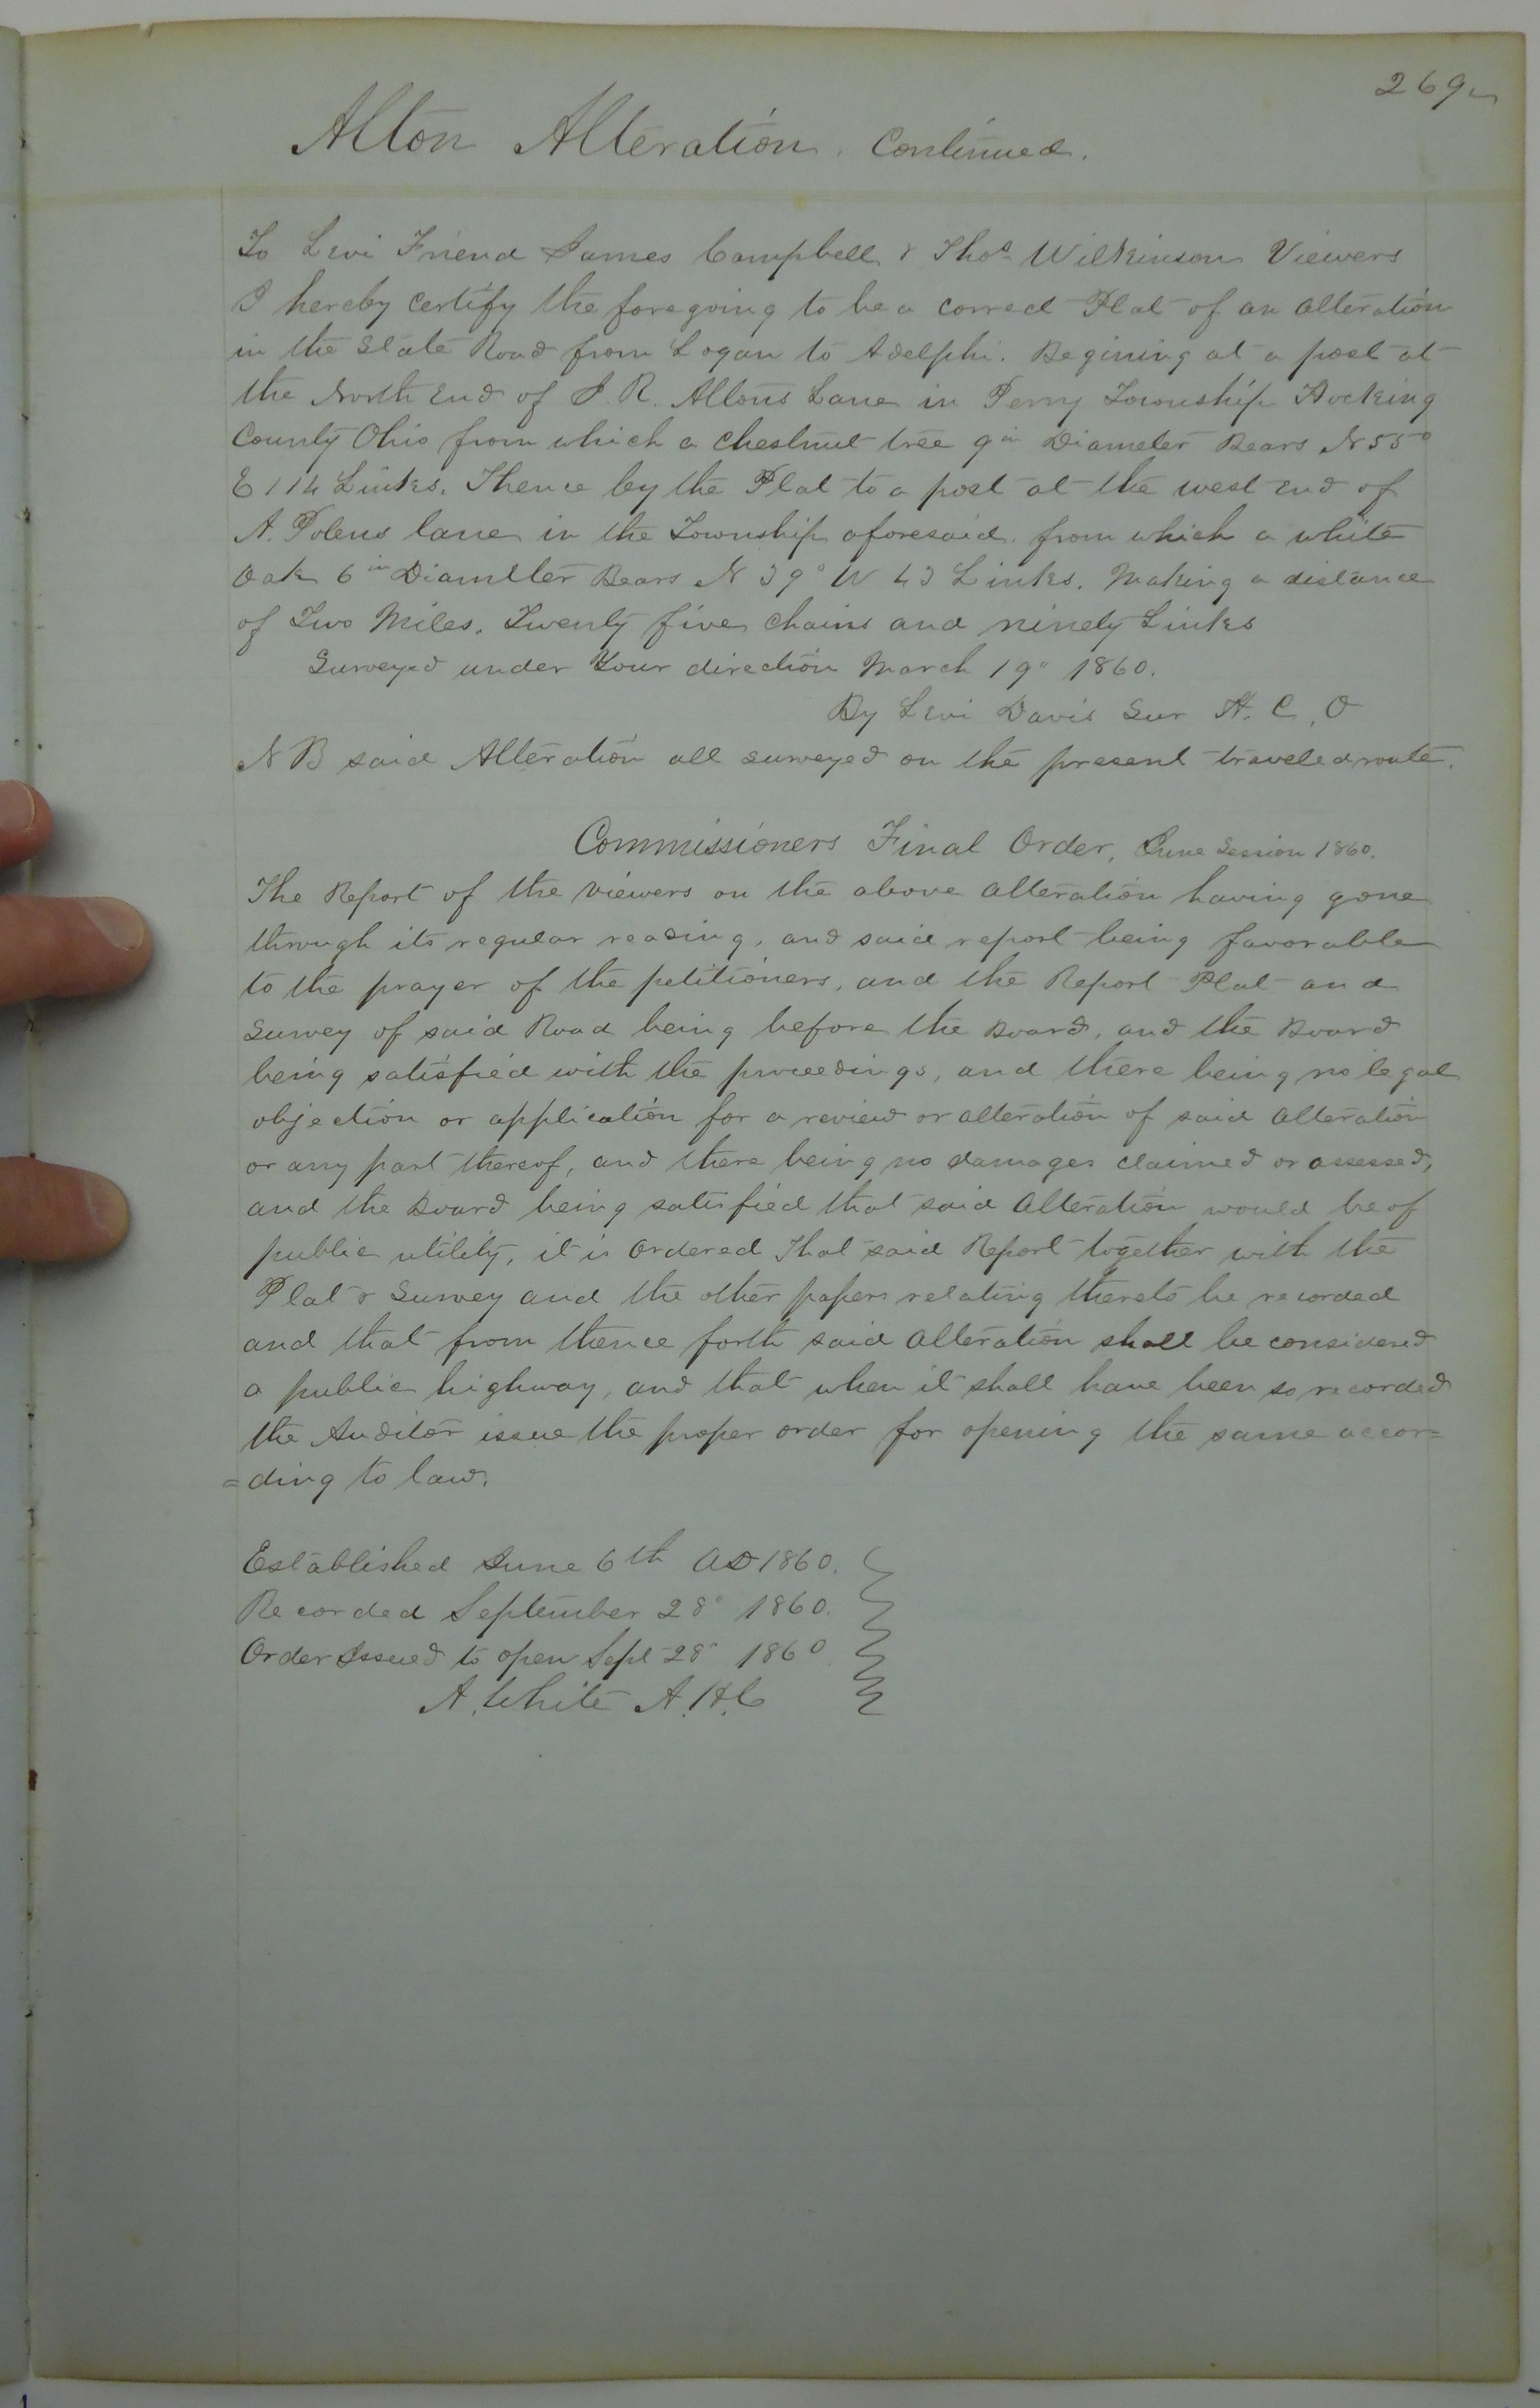 269
Alton Alteration. Continued.
To Levi Friend James Campbell & Thos Wilkinson Viewers
I hereby certify the foregoing to be a correct Plat of an alteration
in the State Road from Logan to Adelphi. Begining at a post at
the North End of J. R. Altons Lane in Perry Township Hocking
County Ohio from which a chestnut tree 9 in Diameter Bears N 55°
E 114 Links. Thence by the Plat to a post at the west End of
A. Polens lane in the Township aforesaid. from which a white
Oak 6 in Diametter Bears N 39° W 43 Links. Making a distance
of Two Miles. Twenty five chains and ninety Links
Surveyed under Your direction March 19" 1860.
By Levi Davis Sur H. C. O
N B said Alteration all surveyed on the present traveled route.
Commissioners Final Order, June Session 1860.
The Report of the viewers on the above alteration having gone
through its regular reading, and said report being favorable
to the prayer of the petitioners, and the Report Plat and
Survey of said Road being before the Board, and the Board
being satisfied with the proceedings, and there being no legal
objection or application for a review or alteration of said alteration
or any part thereof, and there being no damages claimed or assessed,
and the Board being satisfied that said Alteration would be of
public utility, it is Ordered That said Report together with the
Plat & Survey and the other papers relating thereto be recorded
and that from thence forth said Alteration shall be considered
a public highway, and that when it shall have been so recorded
the Auditor issue the proper order for opening the same accor=
=ding to law.
Established June 6th AD 1860.
Recorded September 28" 1860.
Order Issued to open Sept 28" 1860.
A. White A. H. C